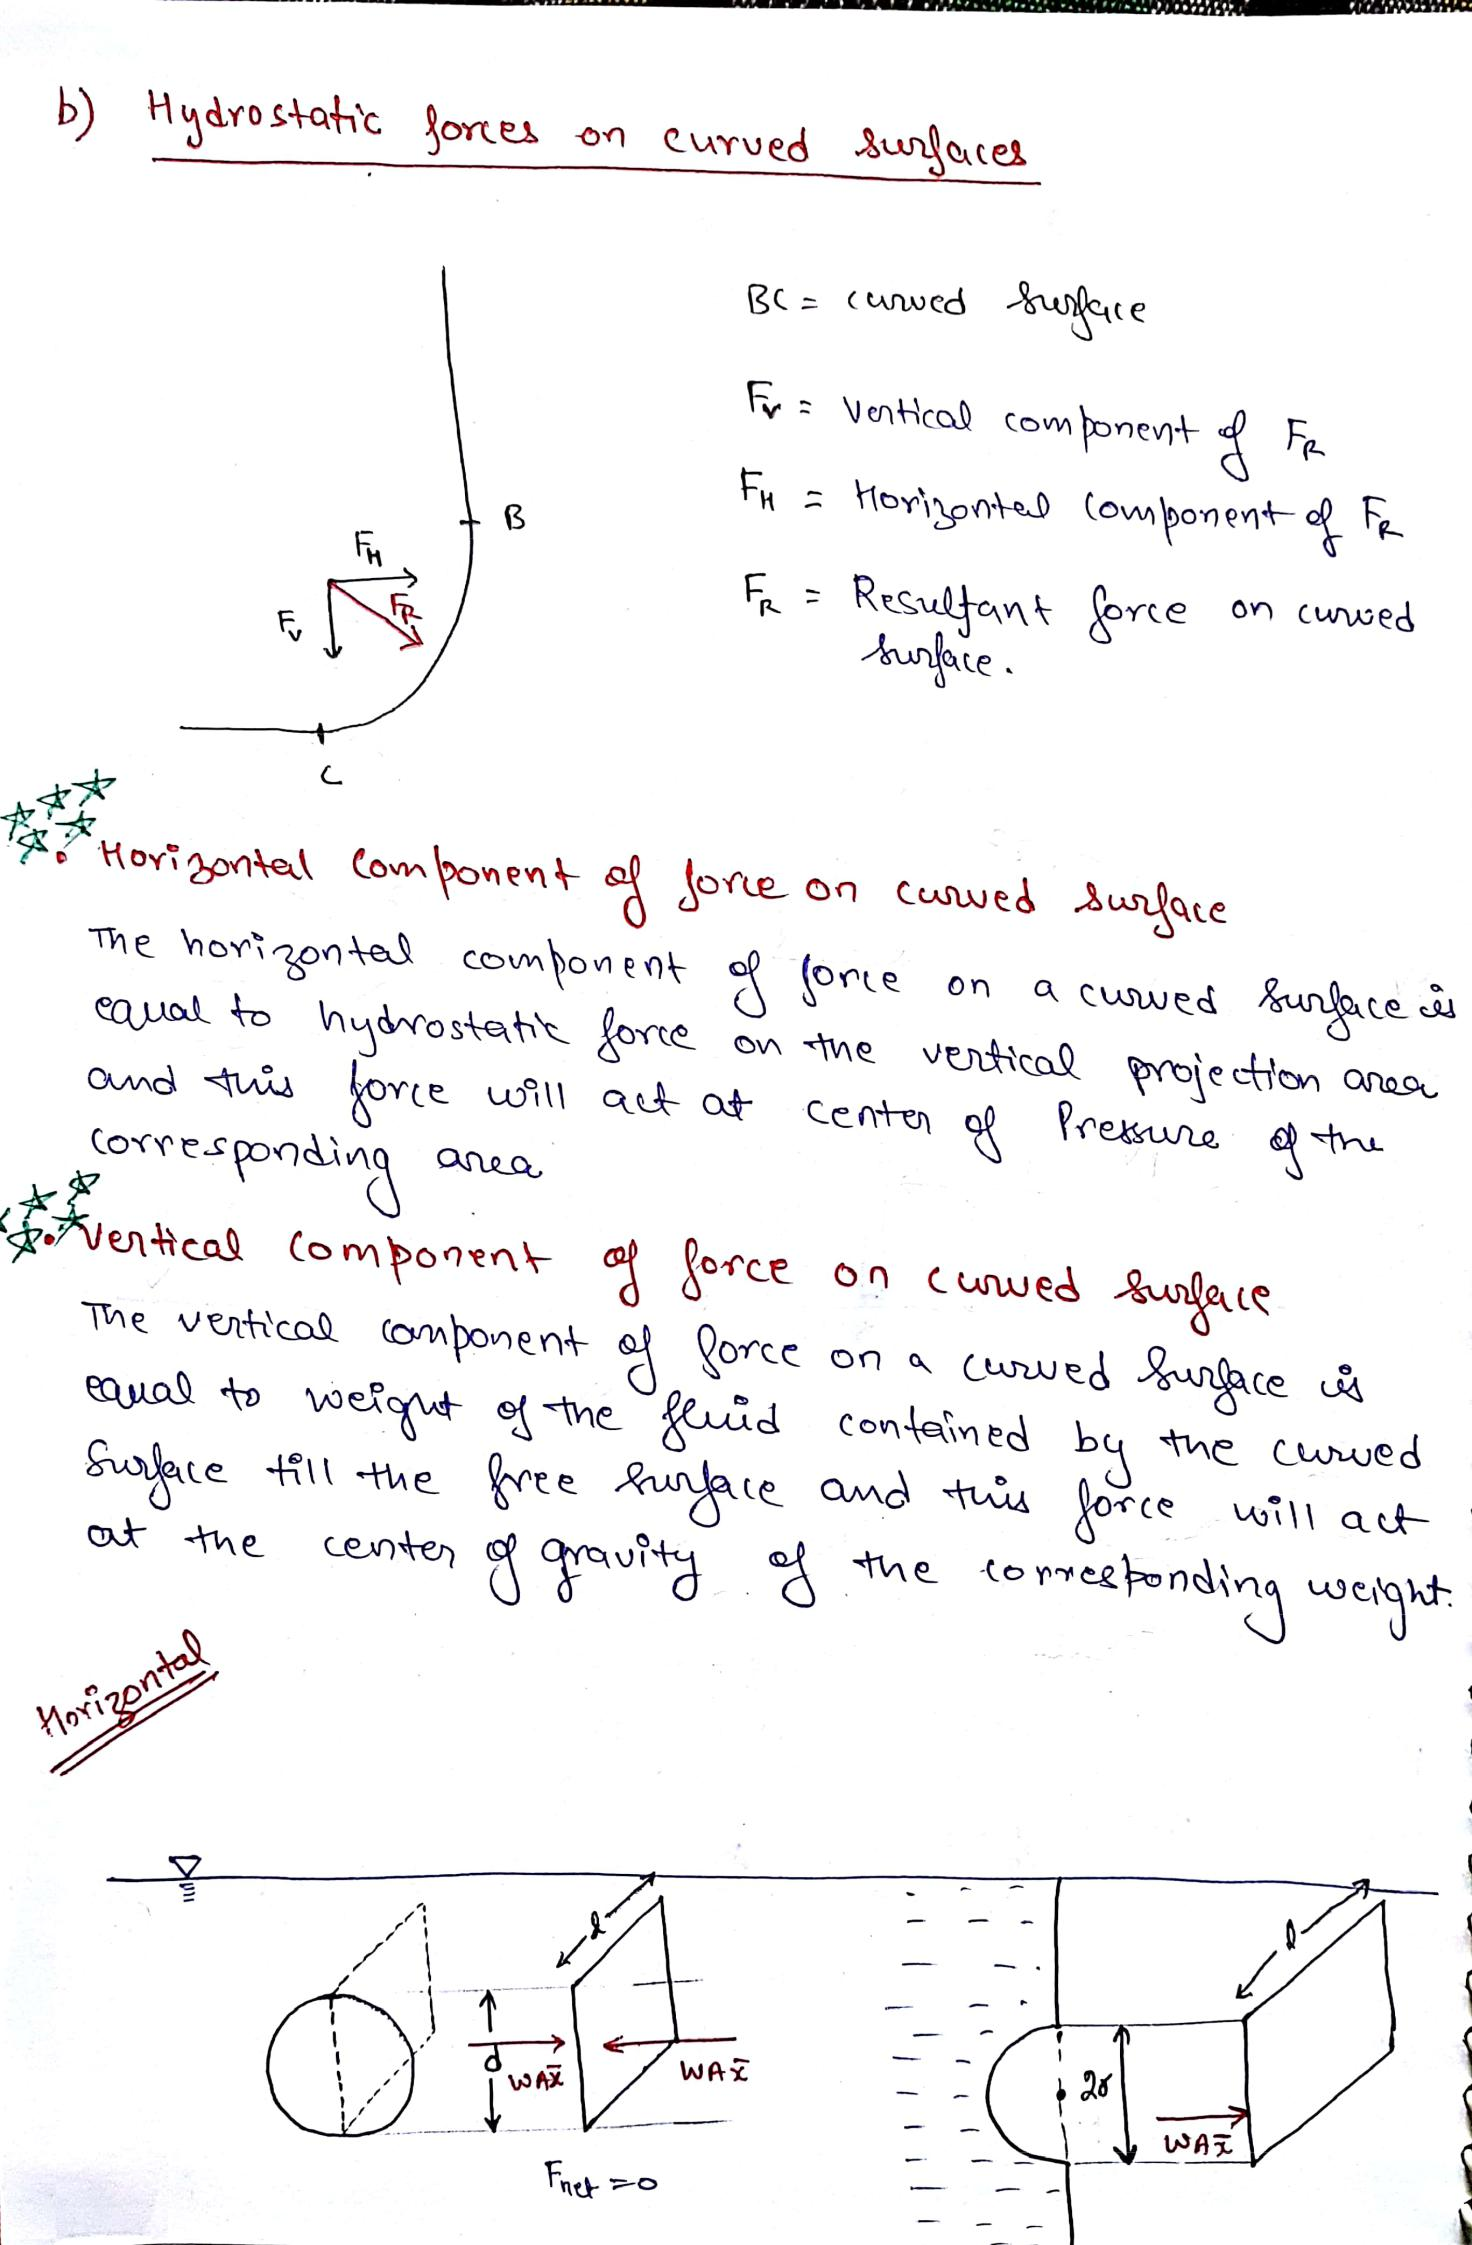 b) Hydrostatic forces on curved surfaces
BC = curved surface
Fv = vertical component of FR
FH = Horizontal component of FR
FR = Resultant force on curved
surface.
B
FH
FR
Fv
C
• Horizontal component of force on curved surface
The horizontal component of force on a curved surface is
equal to hydrostatic force on the vertical projection area
and this force will act at center of Pressure of the
corresponding area
• vertical component of force on curved surface
The vertical component of force on a curved surface is
equal to weight of the fluid contained by the curved
surface till the free surface and this force will act
at the center of gravity of the corresponding weight.
Horizontal
l
d
WAx̄
WAx̄
Fnet = 0
l
2r
WAx̄